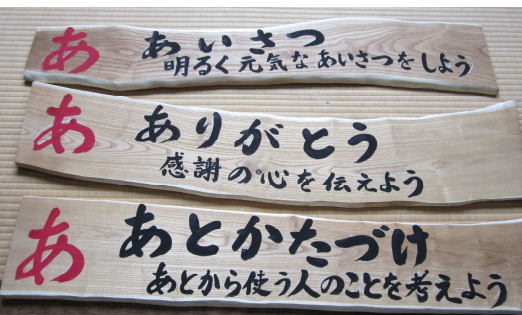 あ あいさつ
明るく元気なあいさつをしよう
あ ありがとう
感謝の心を伝えよう
あ あとかたづけ
あとから使う人のことを考えよう